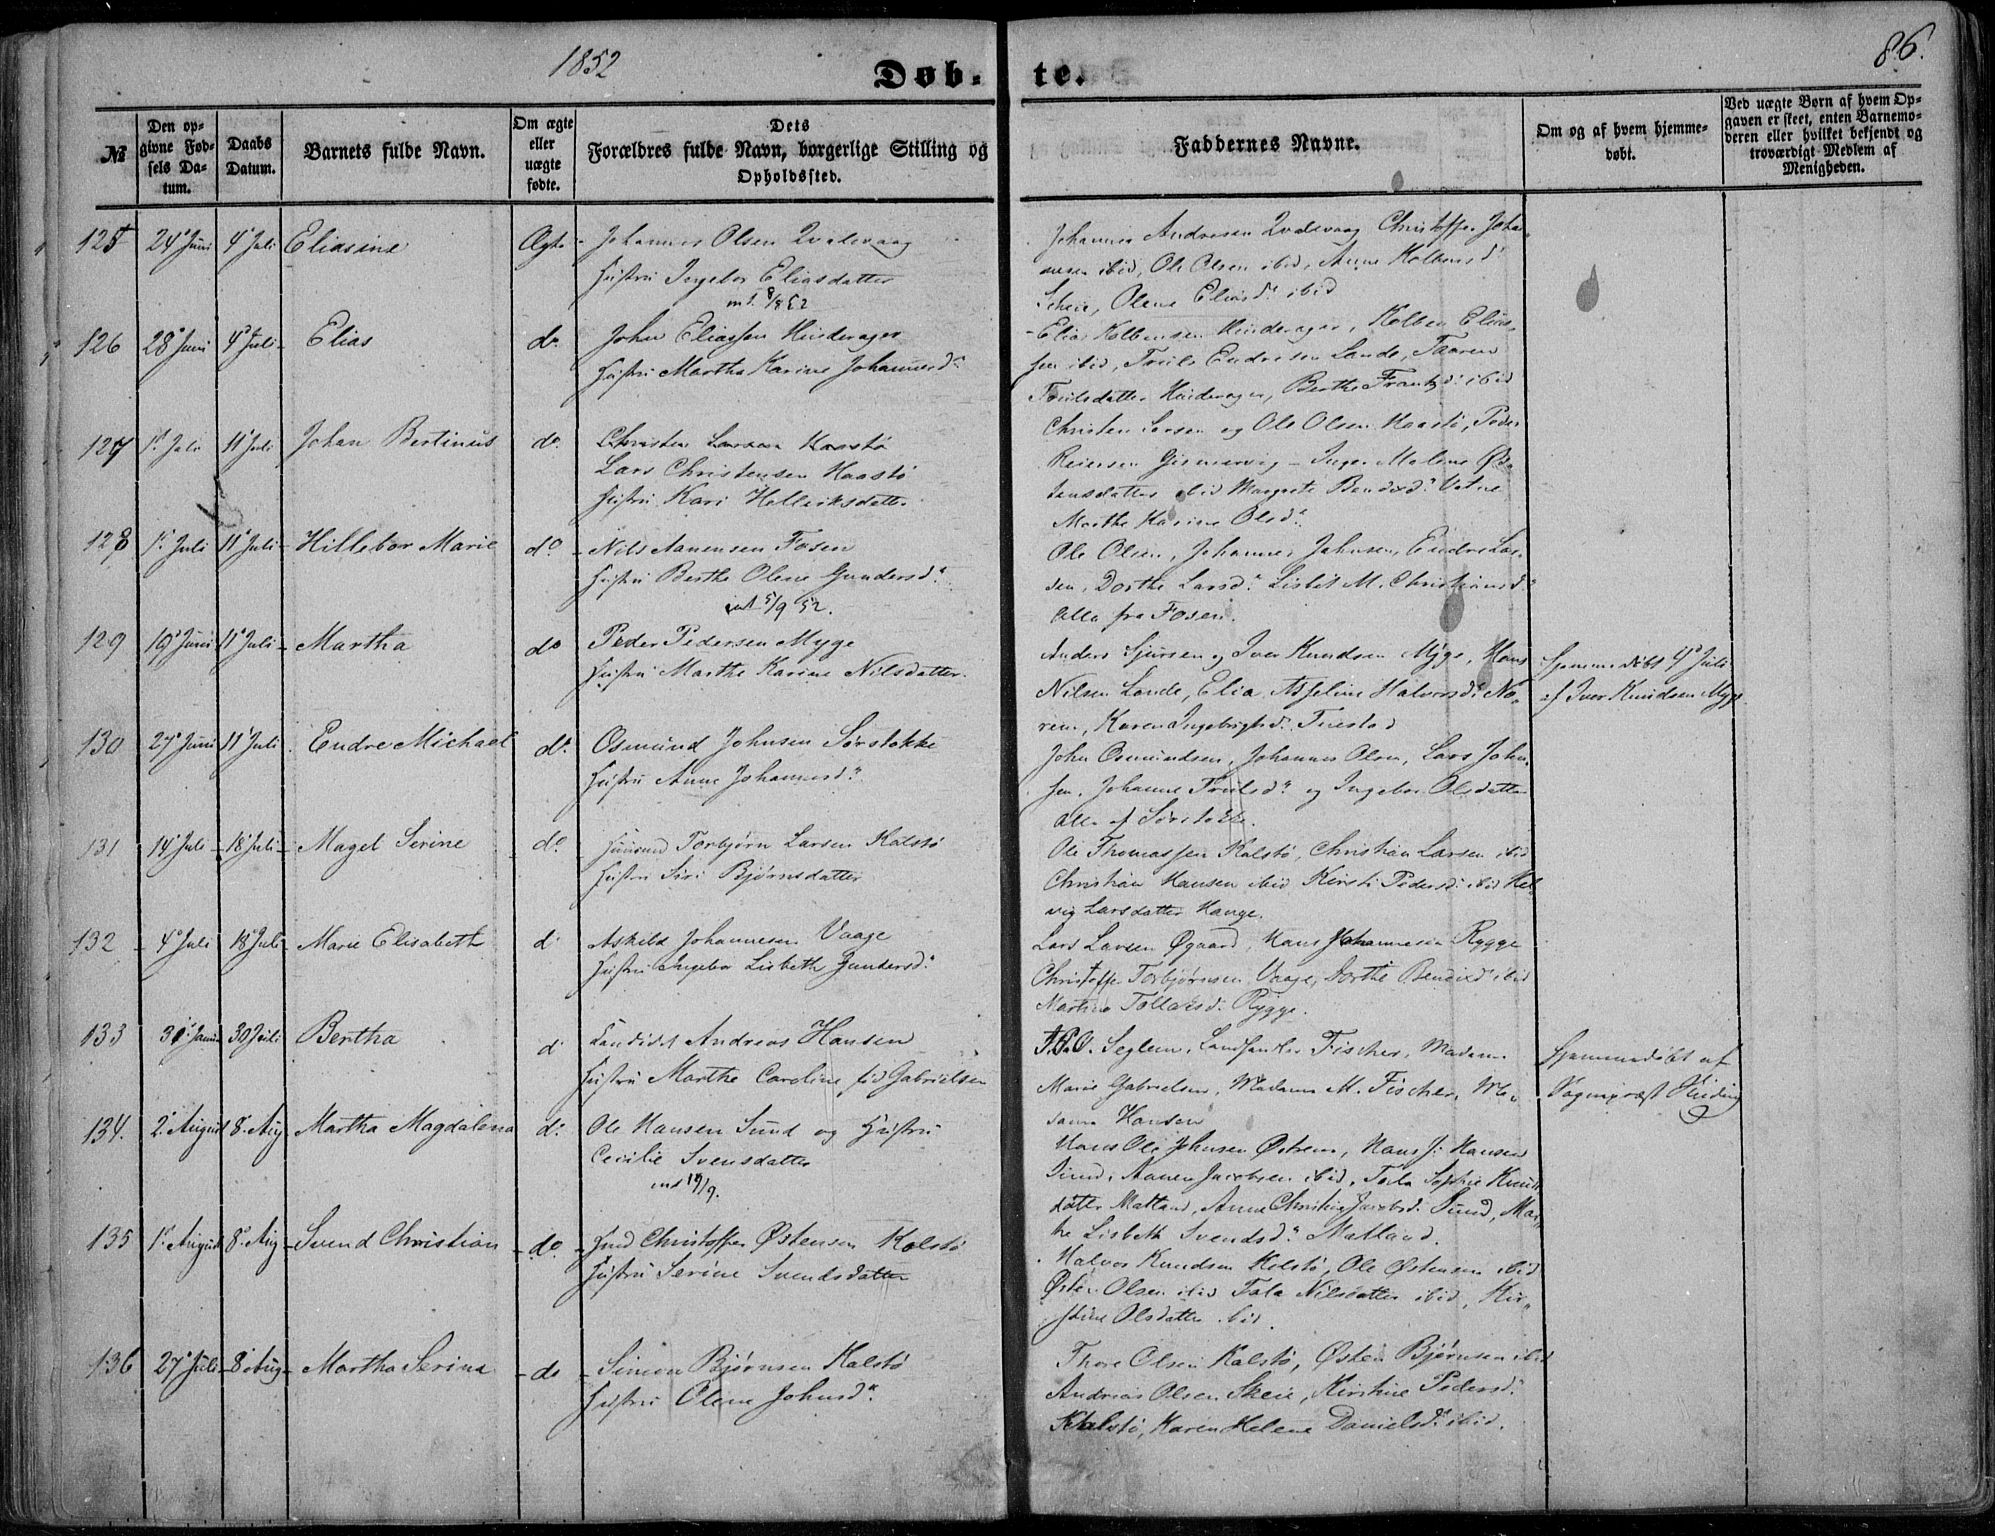 1852
Døb-
te.
86.
№
Den op-
givne Fød-
sels Da-
tum.
Daabs
Datum.
Barnets fulde Navn.
Om ægte
eller
uægte
fødte.
Dets
Forældres fulde Navn, borgerlige Stilling og
Opholdssted.
Faddernes Navne.
Om og af hvem hjemme-
døbt.
Ved uægte Børn af hvem Op-
gaven er skeet, enten Barnemo-
deren eller hvilket bekjendt og
troværdigt Medlem af
Menigheden.
125 24d Juni 4d Juli Eliasine Ægte Johannes Olsen Qvalevaag
Hustru Ingebor Eliasdatter
int. 8/8 52
Johannes Andresen Qvalevaag Christoffer Joha-
nnesen ibid, Ole Olsen ibid, Anne Kolbensd
Scheie, Olene Eliasdr ibid
126 28d Juni 4d Juli Elias do John Eliassen Hinderager
Hustru Martha Karine Johannesdr
Elias Kolbensen Hinderager, Kolben Elias-
sen ibid, Truls Endresen Lande, Taaren
Trulsdatter Hinderager, Berthe Frantzd: ibid
127 1d Juli 11d Juli Johan Bertinus do Christen Larsen Kaastø
Lars Christensen Kaastø
Hustru Kari Helleriksdatter
Christen Larsen og Ole Olsen Kaastø, Peder
Reiersen Gismervig - Inger Malene Øs-
tensdatter ibid Margrete Bendixdr Vatne
Marthe Karine Olsdr
128 1d Juli 11d Juli Hillebor Marie do Nils Aanensen Fosen
Hustru Berthe Olene Gundersdr
int 5/9 52.
Ole Olsen, Johannes Johnsen, Endre Lar-
sen, Dorthe Larsdr Lisbet M. Christiansdr
alle fra Fosen.
129 19d Juni 11d Juli Martha do Peder Pedersen Myge
Hustru Marthe Karine Nilsdatter
Anders Sjursen og Iver Knudsen Myge, Hans
Nilsen Lande, Elia Asseline Halvorsdr No-
rem, Karen Ingebrigtsdr Tuestad
Hjemmedøbt 4d Juli
af Iver Knudsen Myge
130 27d Juni 11d Juli Endre Michael do Osmund Johnsen Sørstokke
Hustru Anne Johannesdr
John Osmundsen, Johannes Olsen, Lars John-
sen, Johanne Trulsdr og Ingebor Olsdatter
alle af Sørstokke.
131 14d Juli 18d Juli Magel Serine do Huusmd Torbjørn Larsen Kalstø
Hustru Siri Bjørnsdatter
Ole Thomassen Kalstø, Christian Larsen ibid
Christian Hansen ibid Kirsti Pedersd: ibid Hel-
vig Larsdatter Hauge.
132 4d Juli 18d Juli Marie Elisabeth d Askild Johannesen Vaage
Hustru Ingebor Lisbeth Gundersdr
Lars Larsen Øgaard, Hans Johannesen Rygge
Christoffer Torbjørnsen Vaage, Dorthe Bendixd ibid
Martine Tollaksd: Rygge.
133 31d Januar 30 Juli Bertha d Kandidat Andreas Hansen
Hustru Marthe Caroline fød Gabrielsen
Seglem, Landhandler Fischer, Madam
Marie Gabrielsen, Madame M. Fischer, Ma-
dame Hansen
Hjemmedøbt af
Sogneprest Hiding
134. 2d August 8d Aug Martha Magdalena do Ole Hansen Sund og Hustru
Cecilie Svensdatter
int 19/9.
Hans Ole Johnsen Østrem, Hans J: Hansen
Sund, Aanen Jacobsen ibid, Tala Sophie Knuds-
datter Matland, Anne Christine Jacobsd: Sund, Mar-
the Lisbeth Svendsdr Matland.
135 1d August 8d Aug Svend Christian do Hmd Christoffer Østensen Kolstø
Hustru Serine Svendsdatter
Halvor Knudsen Kolstø, Ole Østensen ibid
Østen Olsen ibid Tala Nilsdatter ibid, Kir-
stine Olsdatter ibid.
136 27d Juli 8d Aug Martha Serina do Simon Bjørnsen Kalstø
Hustru Olene Johnsdr
Thore Olsen Kalstø, Østen Bjørnsen ibid
Andreas Olsen Skeie, Kirstine Pedersdr
Kalstø, Karen Helene Danielsdr ibid.